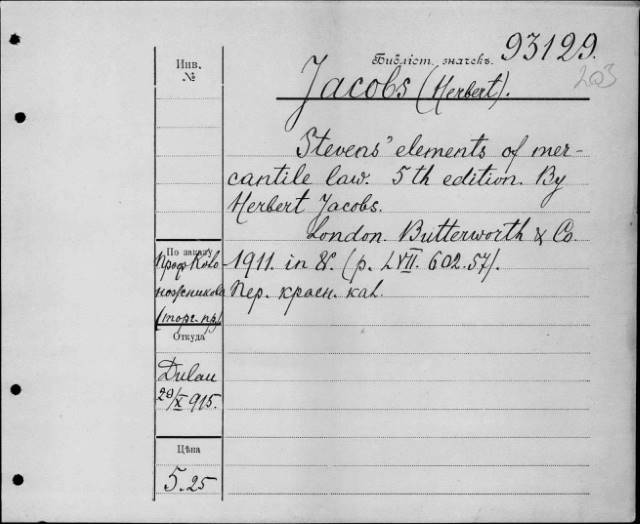 Инв.
№
Библіот. значекъ. 93129.
203
Jacobs (Herbert).
Stevens' elements of mer-
cantile law. 5th edition. By
Herbert Jacobs.
London. Butterworth & Co.
1911. in 8. (p. LVII. 602. 57).
Пер. красн. kal.
По заказу
Проф. Коло
ножникова
(торг. пр)
Откуда
Dulau
29/X 915.
Цѣна
5.25